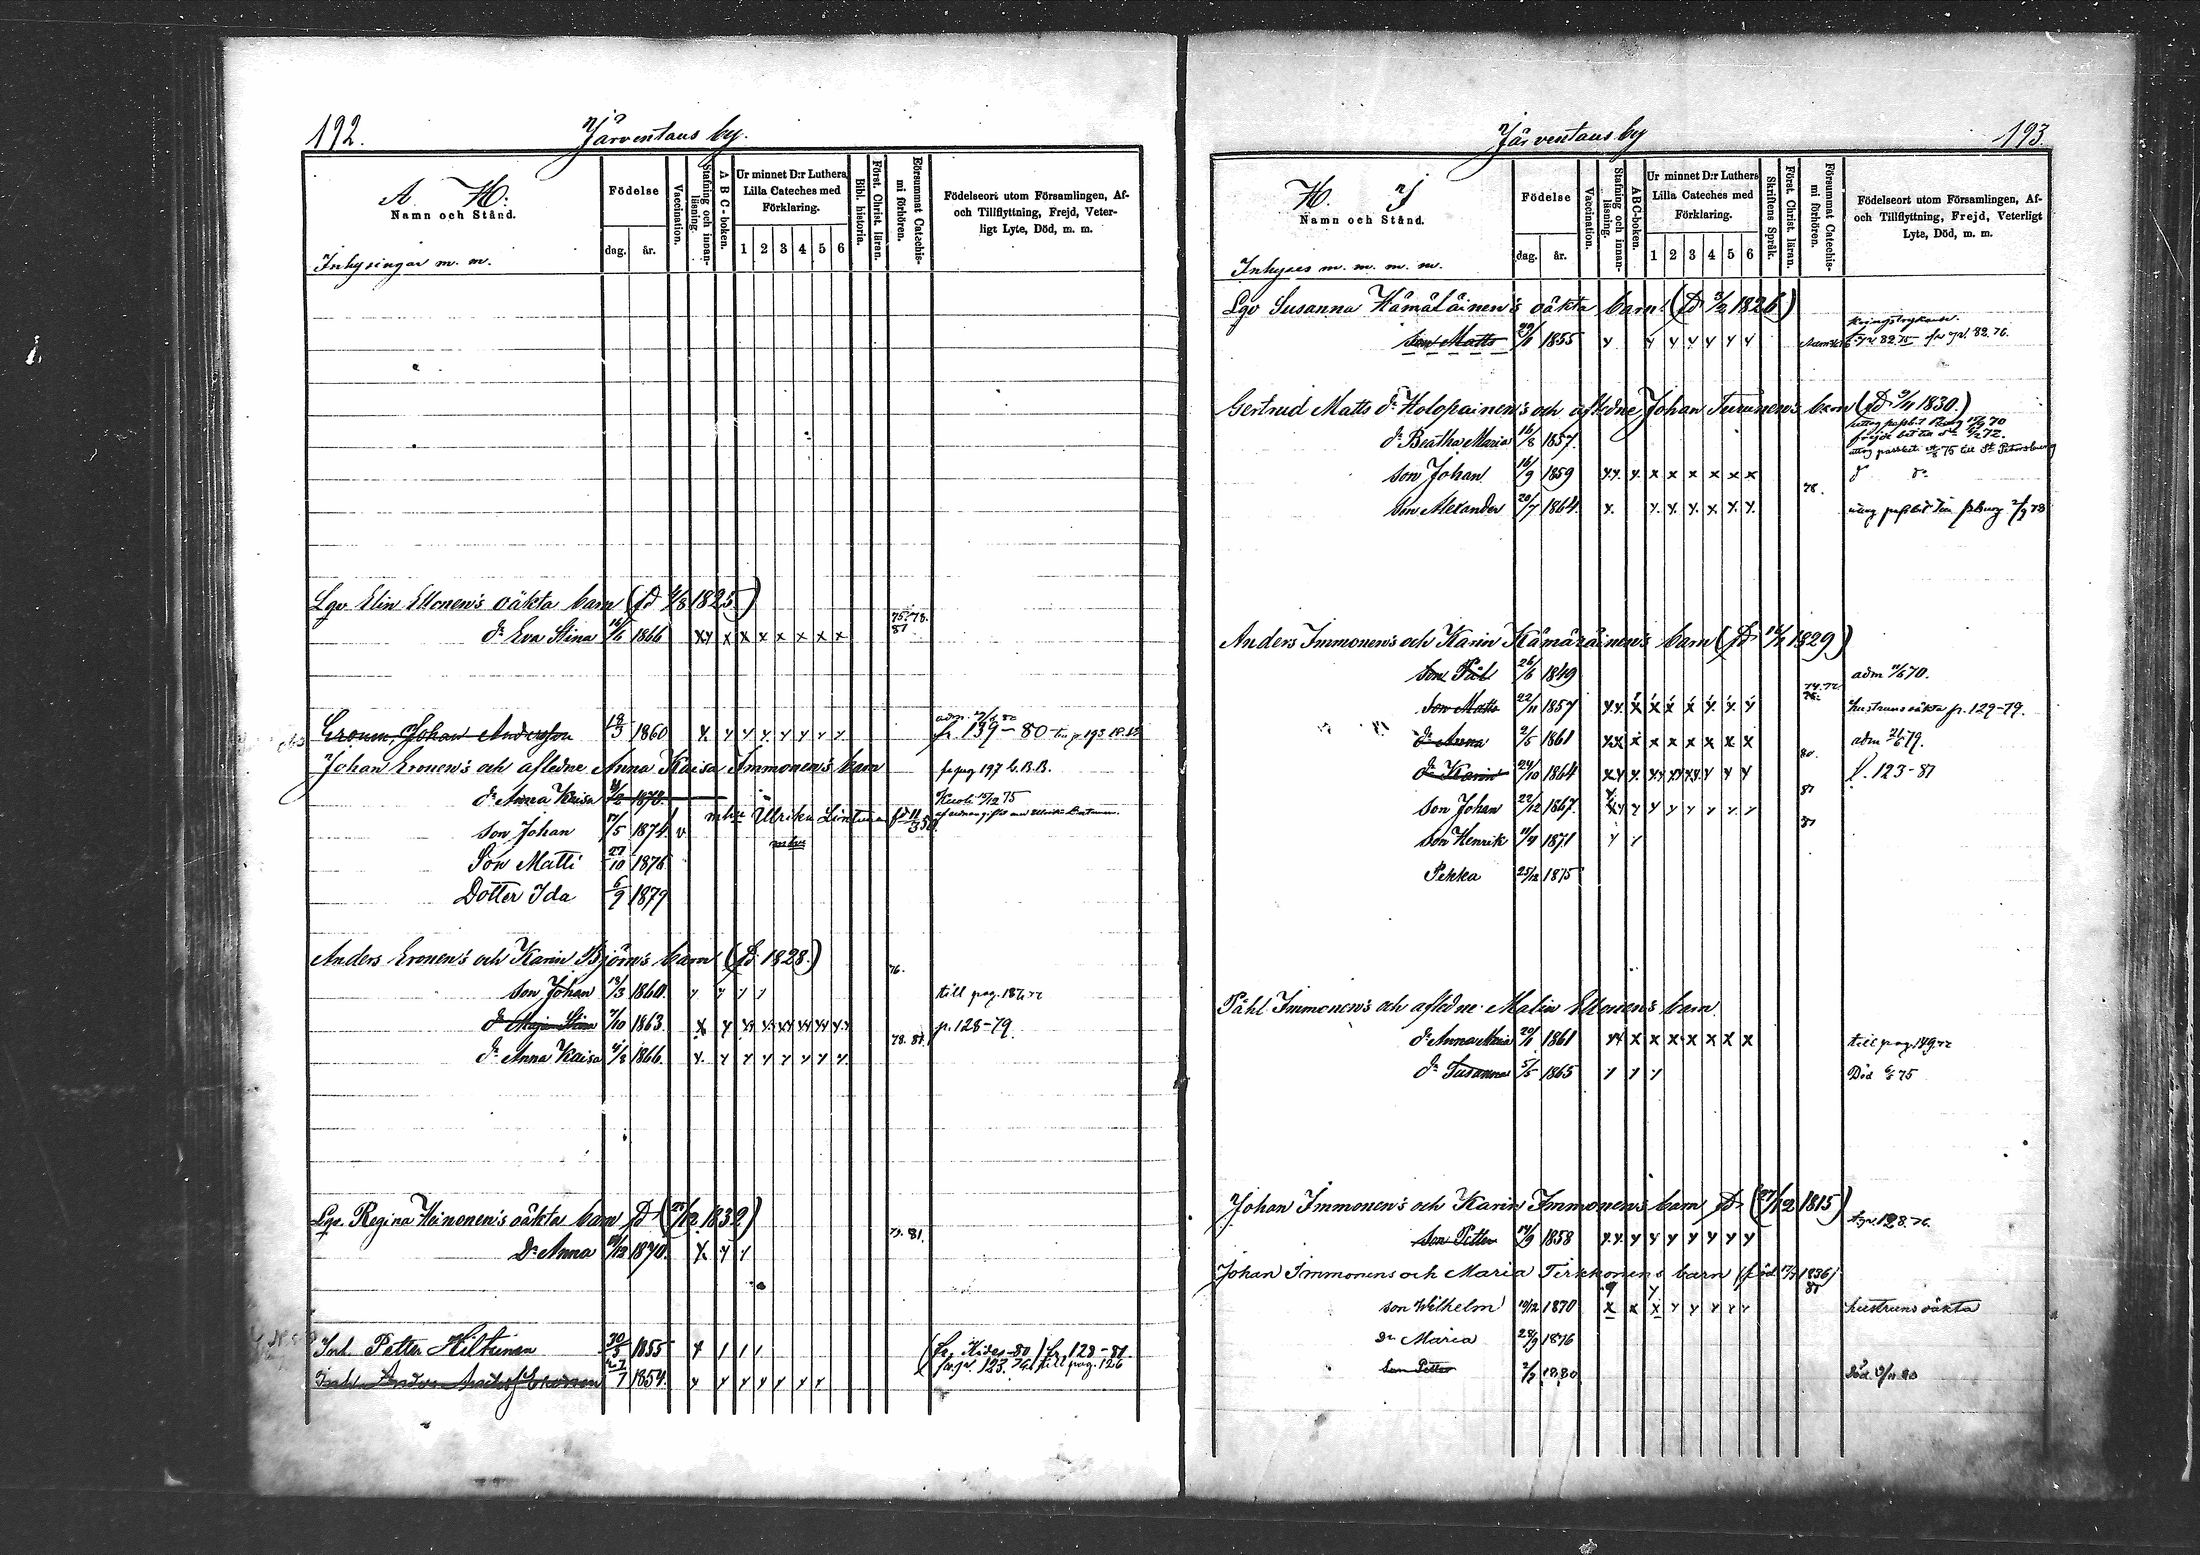 192.
Järventaus by.
A. H:
Namn och Stånd.
Inhysingar m. m.
Födelse
dag. år.
Vaccination.
Stafning och innanläsning.
A B C-boken.
Ur minnet D:r Luthers
Lilla Cateches med
Förklaring.
1 2 3 4 5 6
Bibl. historia.
Först. Christ. läran.
Försummat Catechismi förhören.
Födelseort utom Församlingen, Af-
och Tillflyttning, Frejd, Veter-
ligt Lyte, Död, m. m.
Lgv Elin Ellonen's oäkta barn (fd 4/8 1825)
75. 78.
81
dr Eva Stina 16/6 1866 xy x x x x x x x
Eronen, Johan Andersson 18/3 1860 x y y y y y y y fr. 139-80
Johan Eronen's och afledne Anna Kaisa Immonen's barn fr pag 197 C.B.B.
dr Anna Kaisa 1873 Kuoli 15/12 75
mhu Ulrika Lintunen
son Johan 17/5 1874 v
Son Matti 27/10 1876
Dotter Ida 6/9 1879
Anders Eronen's och Karin Björn's barn (fd 1828)
76.
son Johan 18/3 1860 y y y y till pag. 187
dr Maja Stina 7/10 1863 p. 128-79.
78. 81.
dr Anna Kaisa 4/8 1866. y. y y y y y y y
Lgv. Regina Heinonen's oäkta barn fd (21/12 1832)
81.
Dr Anna 1870. x y y
Inh. Petter Hiltunen 30/5 1855 y 1 1 1 (fr. Kides-80) fr. 128-81
till pag. 126
1854. y y y y y y y
Järventaus by
193.
H. J
Namn och Stånd.
Inhyses m. m. m. m.
Födelse
dag. år.
Vaccination.
Stafning och innanläsning.
ABC-boken.
Ur minnet D:r Luthers
Lilla Cateches med
Förklaring.
1 2 3 4 5 6
Skriftens Språk.
Först. Christ. läran.
Försummat Catechismi förhören.
Födelseort utom Församlingen, Af-
och Tillflyttning, Frejd, Veterligt
Lyte, Död, m. m.
Lgv Susanna Hämäläinen's oäkta barn (fd 3/2 1826)
son Matts 1855 y y y y y y y
Gertrud Matts dr Holopainen's och afledne Johan Turunen's barn (fd 1830.)
dr Beatha Maria 16/8 1857.
75 till St Petersburg
son Johan 16/9 1859 xy. y. x x x x x x
78.
son Alexander 20/7 1864. y. y. y. y. x y. y.
Anders Immonen's och Karin Hämäläinen's barn (fd 1829)
son Pål 26/6 1849 adm 70.
son Matts 22/11 1857 hustruns oäkta p. 129-79.
dr Anna 2/5 1861 adm 79.
80.
dr Karin 24/10 1864 p. 123-81
81
son Johan 22/12 1867.
81
son Henrik 1871 y y
Pekka 25/12 1875
Påhl Immonen's och afledne Malin Ellonen's barn
dr Anna Maria 20/1 1861 xy x x x x x x x till pag. 149
dr Susanna 5/5 1865 y y y Död 75
Johan Immonen's och Karin Immonen's barn fd (27/12 1815)
son Petter 14/9 1858 y.y. y y y y y y y
Johan Immonens och Maria Tirkkonens barn (född 1836)
81
son Wilhelm 19/12 1870 x x x y y y y y hustruns oäkta
dr Maria 28/9 1876
son Petter 2/2 1880 Död 80